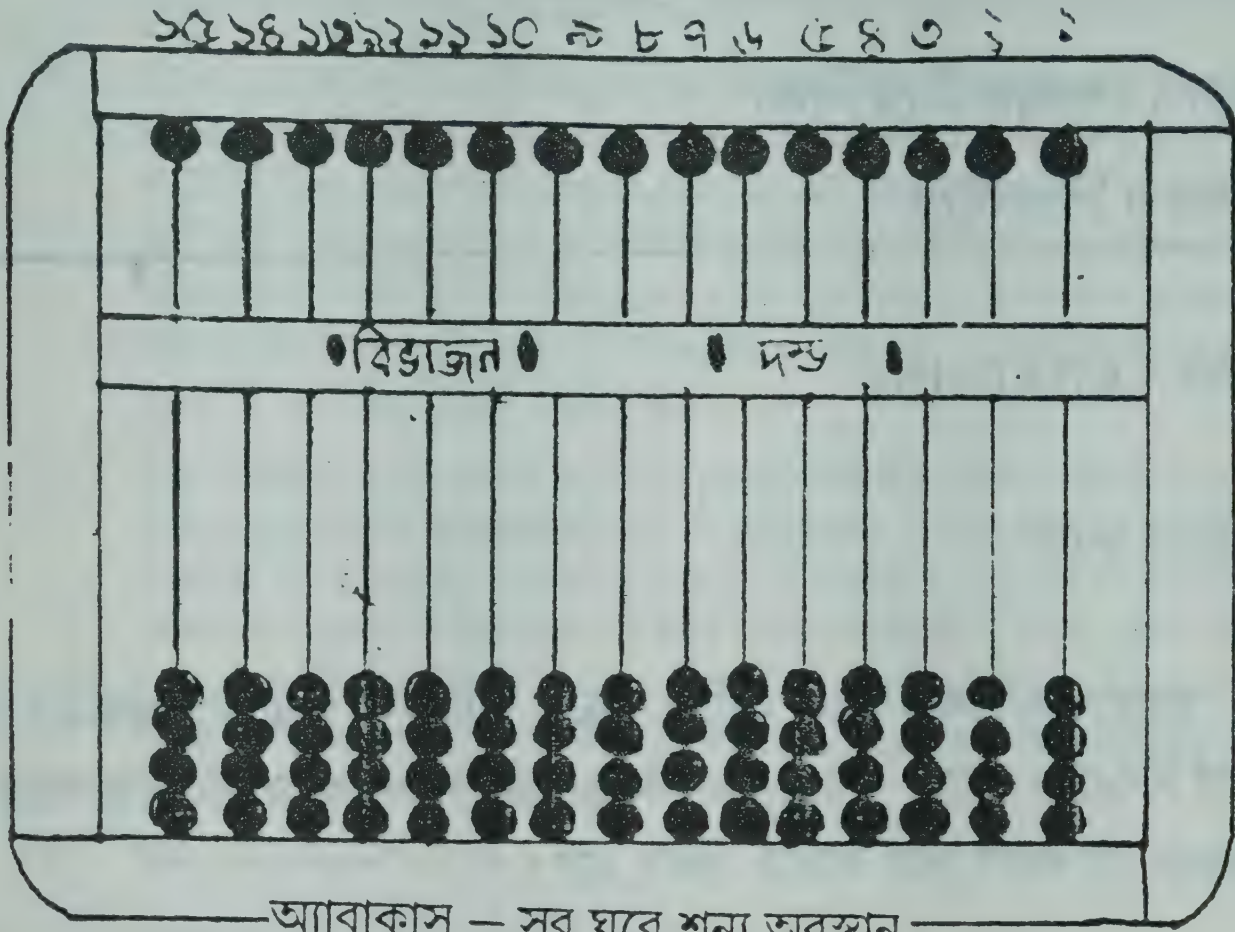 ১৫ ১৪ ১৩ ১২ ১১ ১০ ৯ ৮ ৭ ৬ ৫ ৪ ৩ ২ ১
বিভাজন দন্ড
অ্যাবাকাস — সব ঘরে শূন্য অবস্থান